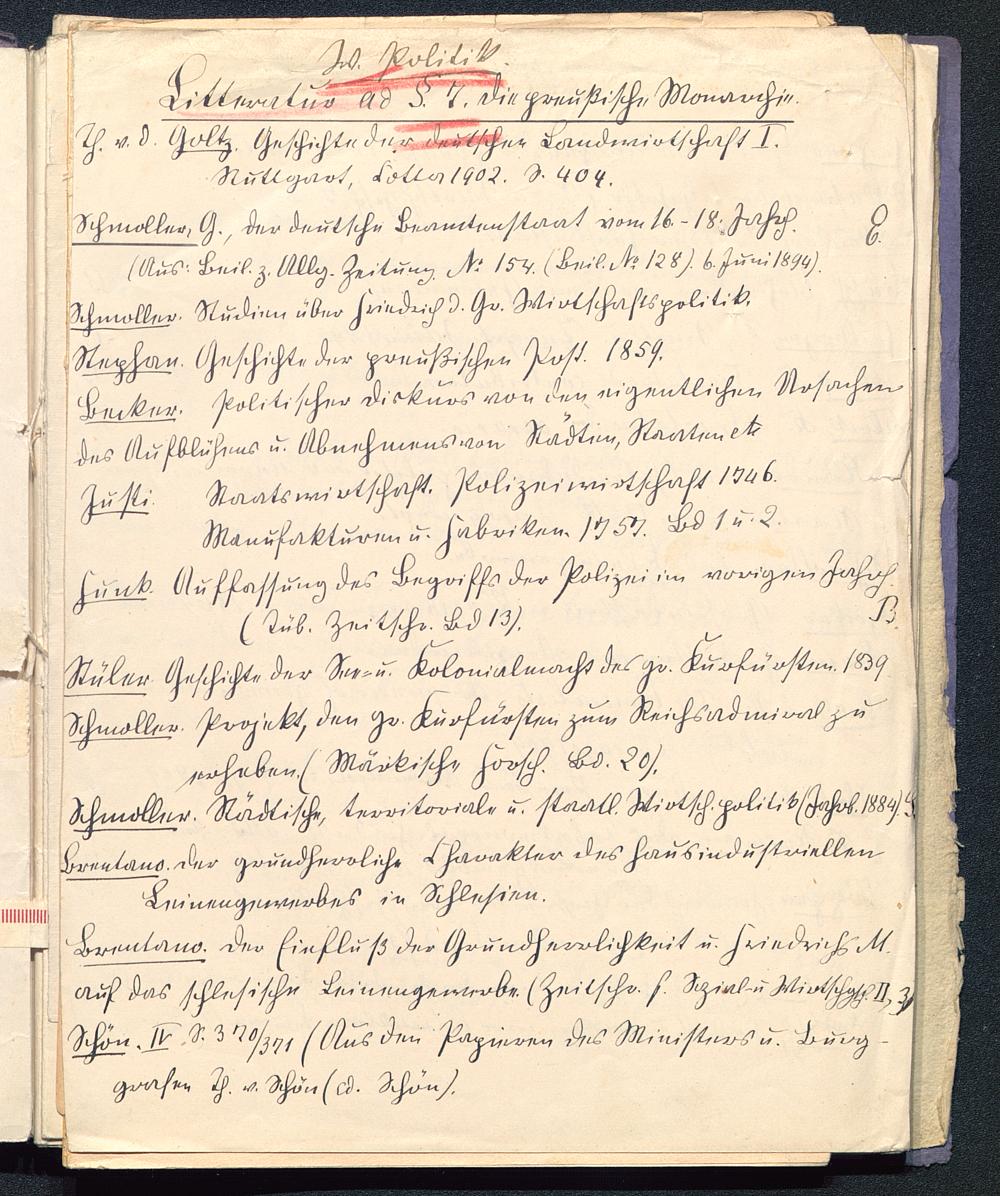 W. Politik.
Litteratur ad §. 7. die preußische Monarchie.
Th. v. d. Goltz. Geschichte der deutschen Landwirtschaft I.
Stuttgart, Cotta 1902. S. 404.
Schmoller, G., der deutsche Beamtenstaat vom 16-18. Jahrh.
(Aus: Beil. z. Allg. Zeitung No 154. (Beil. No 128). 6. Juni 1894).
Schmoller. Studien über Friedrich d. Gr. Wirtschaftspolitik.
Stephan. Geschichte der preußischen Post. 1859.
Becker. Politischer Diskurs von den eigentlichen Ursachen
des Aufblühens u. Abnehmens von Städten, Staaten etc
Justi. Staatswirtschaft. Polizeiwirtschaft 1746.
Manufakturen u. Fabriken. 1757. Bd 1 u. 2.
Funk. Auffassung des Begriffs der Polizei im vorigen Jahrh.
B.
(Tüb. Zeitschr. Bd 13).
Stüler. Geschichte der See- u. Kolonialmacht des gr. Kurfürsten. 1839
Schmoller. Projekt, den gr. Kurfürsten zum Reichsadmiral zu
erheben. (Märkische Forsch. Bd. 20).
Schmoller. Städtische, territoriale u. staatl. Wirtsch.politik (Jahrb. 1884).
Brentano. der grundherrliche Charakter des hausindustriellen
Leinengewerbes in Schlesien.
Brentano. der Einfluß der Grundherrlichkeit u. Friedrichs M.
auf das schlesische Leinengewerbe. (Zeitschr. f. Sozial- u Wirtschgsch. II, 3)
Schön. IV. S. 370/371 (Aus den Papieren des Ministers u. Burg-
grafen Th. v. Schön (ed. Schön).